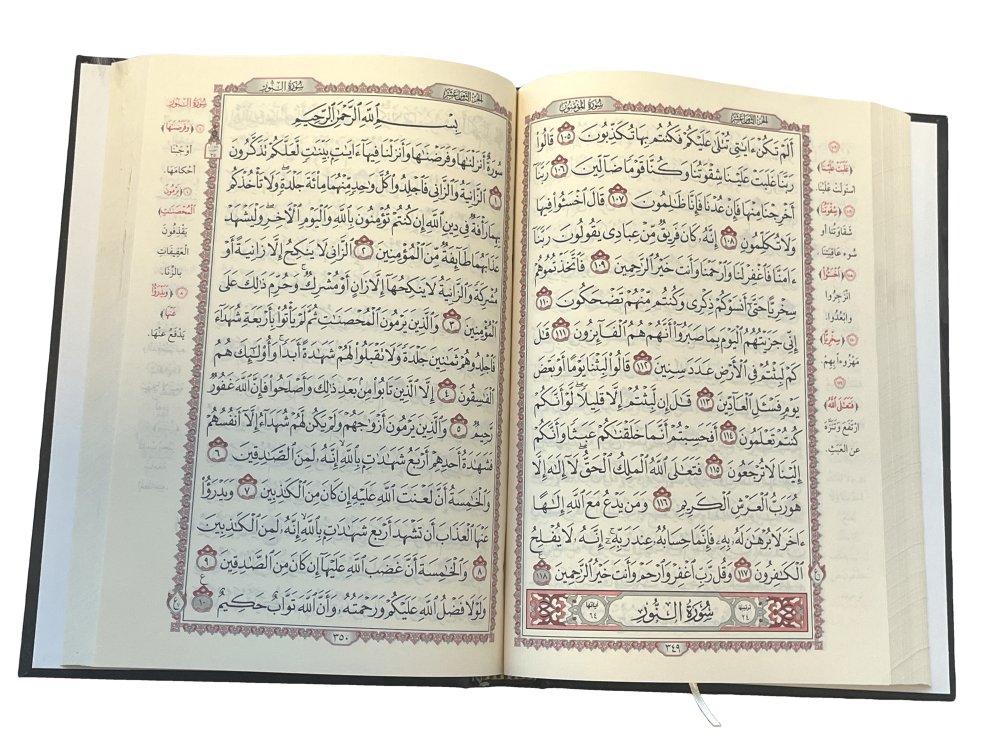 سُورَةُ المُؤْمِنُون
الجُزْءُ الثَّامِنَ عَشَرَ
أَلَمْ تَكُنْ ءَايَٰتِى تُتْلَىٰ عَلَيْكُمْ فَكُنتُم بِهَا تُكَذِّبُونَ ١٠٥ قَالُوا۟
رَبَّنَا غَلَبَتْ عَلَيْنَا شِقْوَتُنَا وَكُنَّا قَوْمًا ضَآلِّينَ ١٠٦ رَبَّنَآ
أَخْرِجْنَا مِنْهَا فَإِنْ عُدْنَا فَإِنَّا ظَٰلِمُونَ ١٠٧ قَالَ ٱخْسَـُٔوا۟ فِيهَا
وَلَا تُكَلِّمُونِ ١٠٨ إِنَّهُۥ كَانَ فَرِيقٌ مِّنْ عِبَادِى يَقُولُونَ رَبَّنَآ
ءَامَنَّا فَٱغْفِرْ لَنَا وَٱرْحَمْنَا وَأَنتَ خَيْرُ ٱلرَّٰحِمِينَ ١٠٩ فَٱتَّخَذْتُمُوهُمْ
سِخْرِيًّا حَتَّىٰٓ أَنسَوْكُمْ ذِكْرِى وَكُنتُم مِّنْهُمْ تَضْحَكُونَ ١١٠
إِنِّى جَزَيْتُهُمُ ٱلْيَوْمَ بِمَا صَبَرُوٓا۟ أَنَّهُمْ هُمُ ٱلْفَآئِزُونَ ١١١ قَٰلَ
كَمْ لَبِثْتُمْ فِى ٱلْأَرْضِ عَدَدَ سِنِينَ ١١٢ قَالُوا۟ لَبِثْنَا يَوْمًا أَوْ بَعْضَ
يَوْمٍ فَسْـَٔلِ ٱلْعَآدِّينَ ١١٣ قَٰلَ إِن لَّبِثْتُمْ إِلَّا قَلِيلًا ۖ لَّوْ أَنَّكُمْ
كُنتُمْ تَعْلَمُونَ ١١٤ أَفَحَسِبْتُمْ أَنَّمَا خَلَقْنَٰكُمْ عَبَثًا وَأَنَّكُمْ
إِلَيْنَا لَا تُرْجَعُونَ ١١٥ فَتَعَٰلَى ٱللَّهُ ٱلْمَلِكُ ٱلْحَقُّ ۖ لَآ إِلَٰهَ إِلَّا
هُوَ رَبُّ ٱلْعَرْشِ ٱلْكَرِيمِ ١١٦ وَمَن يَدْعُ مَعَ ٱللَّهِ إِلَٰهًا
ءَاخَرَ لَا بُرْهَٰنَ لَهُۥ بِهِۦ فَإِنَّمَا حِسَابُهُۥ عِندَ رَبِّهِۦٓ ۚ إِنَّهُۥ لَا يُفْلِحُ
ٱلْكَٰفِرُونَ ١١٧ وَقُل رَّبِّ ٱغْفِرْ وَٱرْحَمْ وَأَنتَ خَيْرُ ٱلرَّٰحِمِينَ ١١٨
ترتيبها ٢٤ سُورَةُ النُّورِ آياتها ٦٤
٣٤٩
﴿غَلَبَتْ عَلَيْنَا﴾
استولت علينا
﴿شِقْوَتُنَا﴾
شقاوتنا أو
سوء عاقبتنا
﴿ٱخْسَـُٔوا۟﴾
انزجروا
وابعدوا
﴿سِخْرِيًّا﴾
مهزوءا بهم.
﴿فَتَعَٰلَى ٱللَّهُ﴾
ارتفع وتنزه
عن العبث
الجُزْءُ الثَّامِنَ عَشَرَ
سُورَةُ النُّورِ
بِسْمِ ٱللَّهِ ٱلرَّحْمَٰنِ ٱلرَّحِيمِ
سُورَةٌ أَنزَلْنَٰهَا وَفَرَضْنَٰهَا وَأَنزَلْنَا فِيهَآ ءَايَٰتٍۭ بَيِّنَٰتٍ لَّعَلَّكُمْ تَذَكَّرُونَ
١ ٱلزَّانِيَةُ وَٱلزَّانِى فَٱجْلِدُوا۟ كُلَّ وَٰحِدٍ مِّنْهُمَا مِا۟ئَةَ جَلْدَةٍ ۖ وَلَا تَأْخُذْكُم
بِهِمَا رَأْفَةٌ فِى دِينِ ٱللَّهِ إِن كُنتُمْ تُؤْمِنُونَ بِٱللَّهِ وَٱلْيَوْمِ ٱلْءَاخِرِ ۖ وَلْيَشْهَدْ
عَذَابَهُمَا طَآئِفَةٌ مِّنَ ٱلْمُؤْمِنِينَ ٢ ٱلزَّانِى لَا يَنكِحُ إِلَّا زَانِيَةً أَوْ
مُشْرِكَةً وَٱلزَّانِيَةُ لَا يَنكِحُهَآ إِلَّا زَانٍ أَوْ مُشْرِكٌ ۚ وَحُرِّمَ ذَٰلِكَ عَلَى
ٱلْمُؤْمِنِينَ ٣ وَٱلَّذِينَ يَرْمُونَ ٱلْمُحْصَنَٰتِ ثُمَّ لَمْ يَأْتُوا۟ بِأَرْبَعَةِ شُهَدَآءَ
فَٱجْلِدُوهُمْ ثَمَٰنِينَ جَلْدَةً وَلَا تَقْبَلُوا۟ لَهُمْ شَهَٰدَةً أَبَدًا ۚ وَأُو۟لَٰٓئِكَ هُمُ
ٱلْفَٰسِقُونَ ٤ إِلَّا ٱلَّذِينَ تَابُوا۟ مِنۢ بَعْدِ ذَٰلِكَ وَأَصْلَحُوا۟ فَإِنَّ ٱللَّهَ غَفُورٌ
رَّحِيمٌ ٥ وَٱلَّذِينَ يَرْمُونَ أَزْوَٰجَهُمْ وَلَمْ يَكُن لَّهُمْ شُهَدَآءُ إِلَّآ أَنفُسُهُمْ
فَشَهَٰدَةُ أَحَدِهِمْ أَرْبَعُ شَهَٰدَٰتٍۭ بِٱللَّهِ ۙ إِنَّهُۥ لَمِنَ ٱلصَّٰدِقِينَ ٦
وَٱلْخَٰمِسَةُ أَنَّ لَعْنَتَ ٱللَّهِ عَلَيْهِ إِن كَانَ مِنَ ٱلْكَٰذِبِينَ ٧ وَيَدْرَؤُا۟
عَنْهَا ٱلْعَذَابَ أَن تَشْهَدَ أَرْبَعَ شَهَٰدَٰتٍۭ بِٱللَّهِ ۙ إِنَّهُۥ لَمِنَ ٱلْكَٰذِبِينَ
٨ وَٱلْخَٰمِسَةَ أَنَّ غَضَبَ ٱللَّهِ عَلَيْهَآ إِن كَانَ مِنَ ٱلصَّٰدِقِينَ ٩
وَلَوْلَا فَضْلُ ٱللَّهِ عَلَيْكُمْ وَرَحْمَتُهُۥ وَأَنَّ ٱللَّهَ تَوَّابٌ حَكِيمٌ ١٠
٣٥٠
سُورَةُ النُّورِ
﴿وَفَرَضْنَٰهَا﴾
أوجبنا
أحكامها.
﴿يَرْمُونَ
ٱلْمُحْصَنَٰتِ﴾
يقذفون
العفيفات
بالزنا.
﴿وَيَدْرَؤُا۟
عَنْهَا﴾
يدفع عنها.